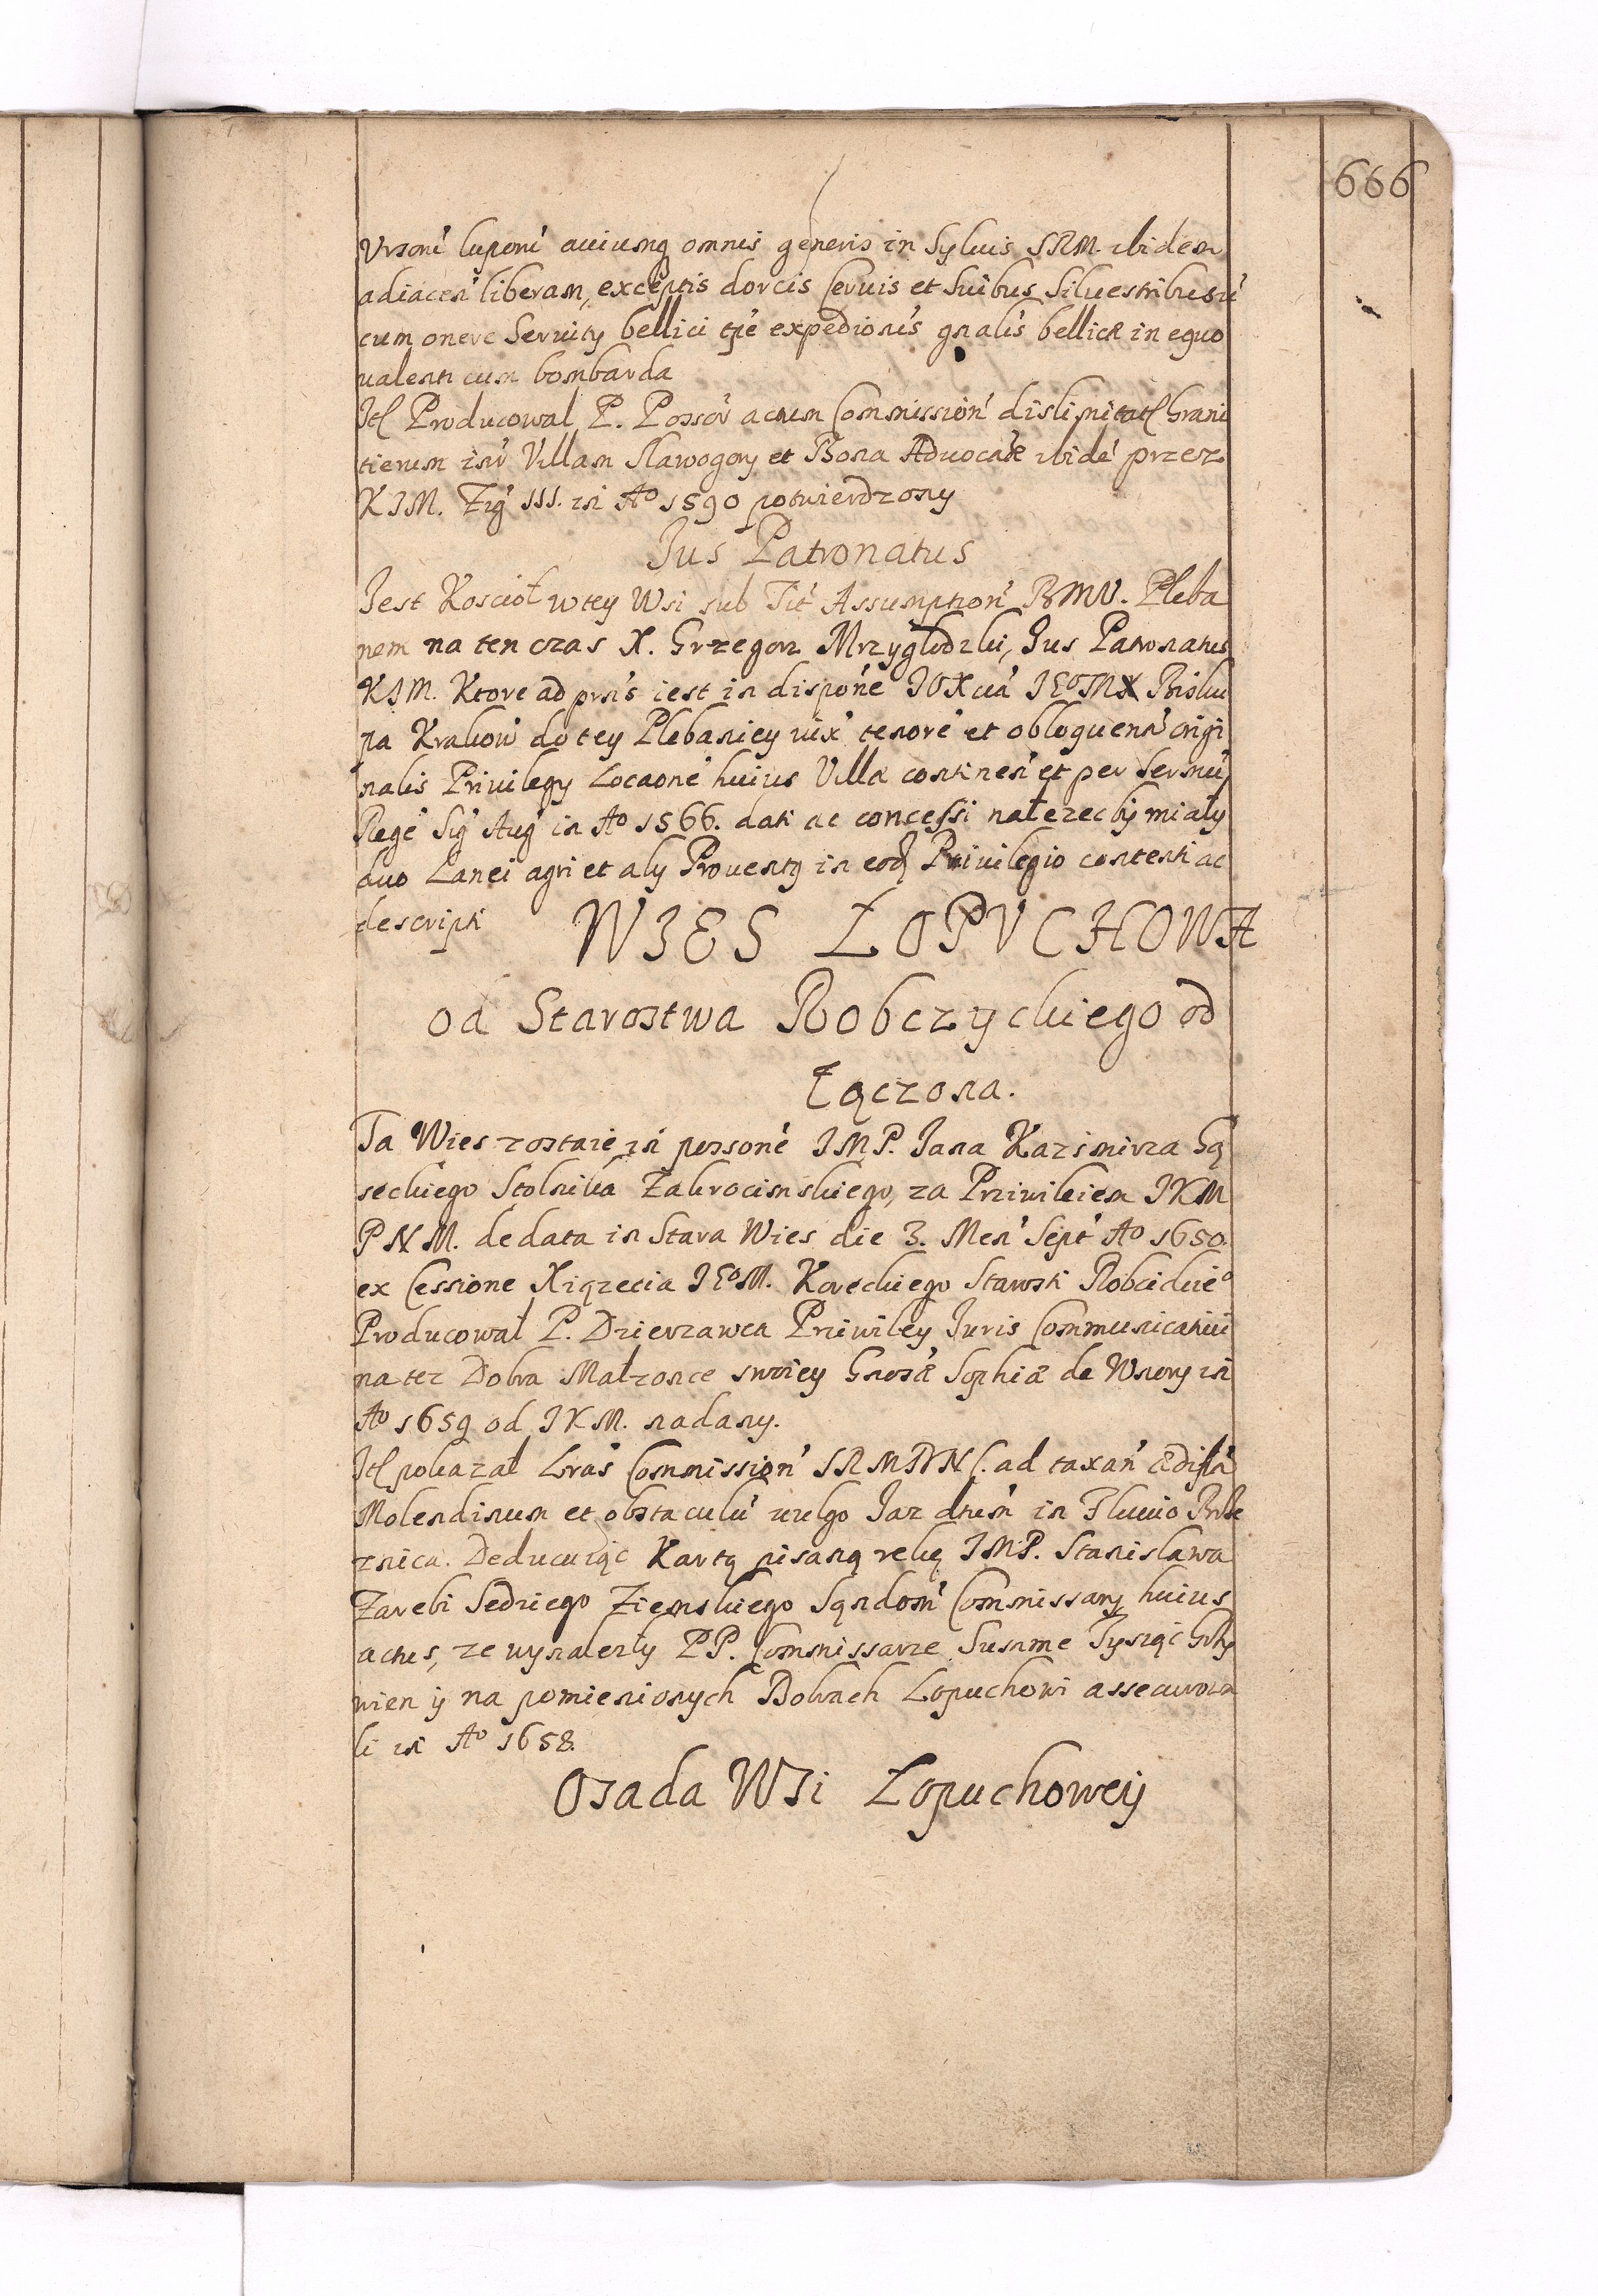 666
Vrsoni luponi auiumq omnis generis in Syluis SRM. ibidem
adiacen liberam, exceptis dorcis Ceruis et Suibus Siluestribus
cum onere Seruity bellici tpe expedionis gnalis bellicæ in equo
ualenti cum bombarda
Itl Producował P. Possor actum Commission dislimitatl Grani
tierum inr Villam Nawogory et Bona Aduocatæ ibide przez
KJM. Zig III. in Ao 1590 potwierdzony
Jus Patronatus
Jest Kosciół w tey Wsi sub Tit Assumption BMV. Pleba
nem na ten czas X. Grzegorz Mrzyglodzki, Jus Patronatus
KJM. Ktore ad prns iest in dispone JOXcia JEoMX Bisku
pa Krakow do tey Plebaniey iux tenore et obloquen origi
nalis Priuilegy Locaone huius Villæ continen et per Sermu
Rege Sig Aug in Ao 1566. dati ac concessi należec by miały
duo Lanei agri et aly Prouentq in eod Priuilegio contenti ac
descripti
WIES ŁOPVCHOWA
od Starostwa Robczyckiego od
Łączona.
Ta Wies zostaie in personé JMP. Jana Kazimirza Gą
seckiego Stolnika Zakrocimskiego, za Priwileiem JKM
PNM. de data in Stara Wies die 3. Men Sept Ao 1650.
ex Cessione Xiązecia JEoM. Koreckiego Starosti Robcickieo
Producował P. Dzierzawca Priwiley Juris Communicatiui
na tez Dobra Małzonce swoiey Gnosæ Sophiæ de Wnory in
Ao 1659 od JKM. nadany.
Itl pokazał Lras Commission SRMDNC. ad taxan ædifta
Molendinum et obstaculu uulgo Jaz dtum in Fluuio Brze
znica. Deducuiąc Kartą pisaną ręką JMP. Stanislawa
Zarebi Sedziego Ziemskiego Sąndom Commissary huius
actus, ze wynalezly PP. Commissarze Summe Tysiąc Grzy
wien ij na pomienionych Dobrach Lopuchowi assecurowa
li in Ao 1658.
Osada Wsi Łopuchoweij